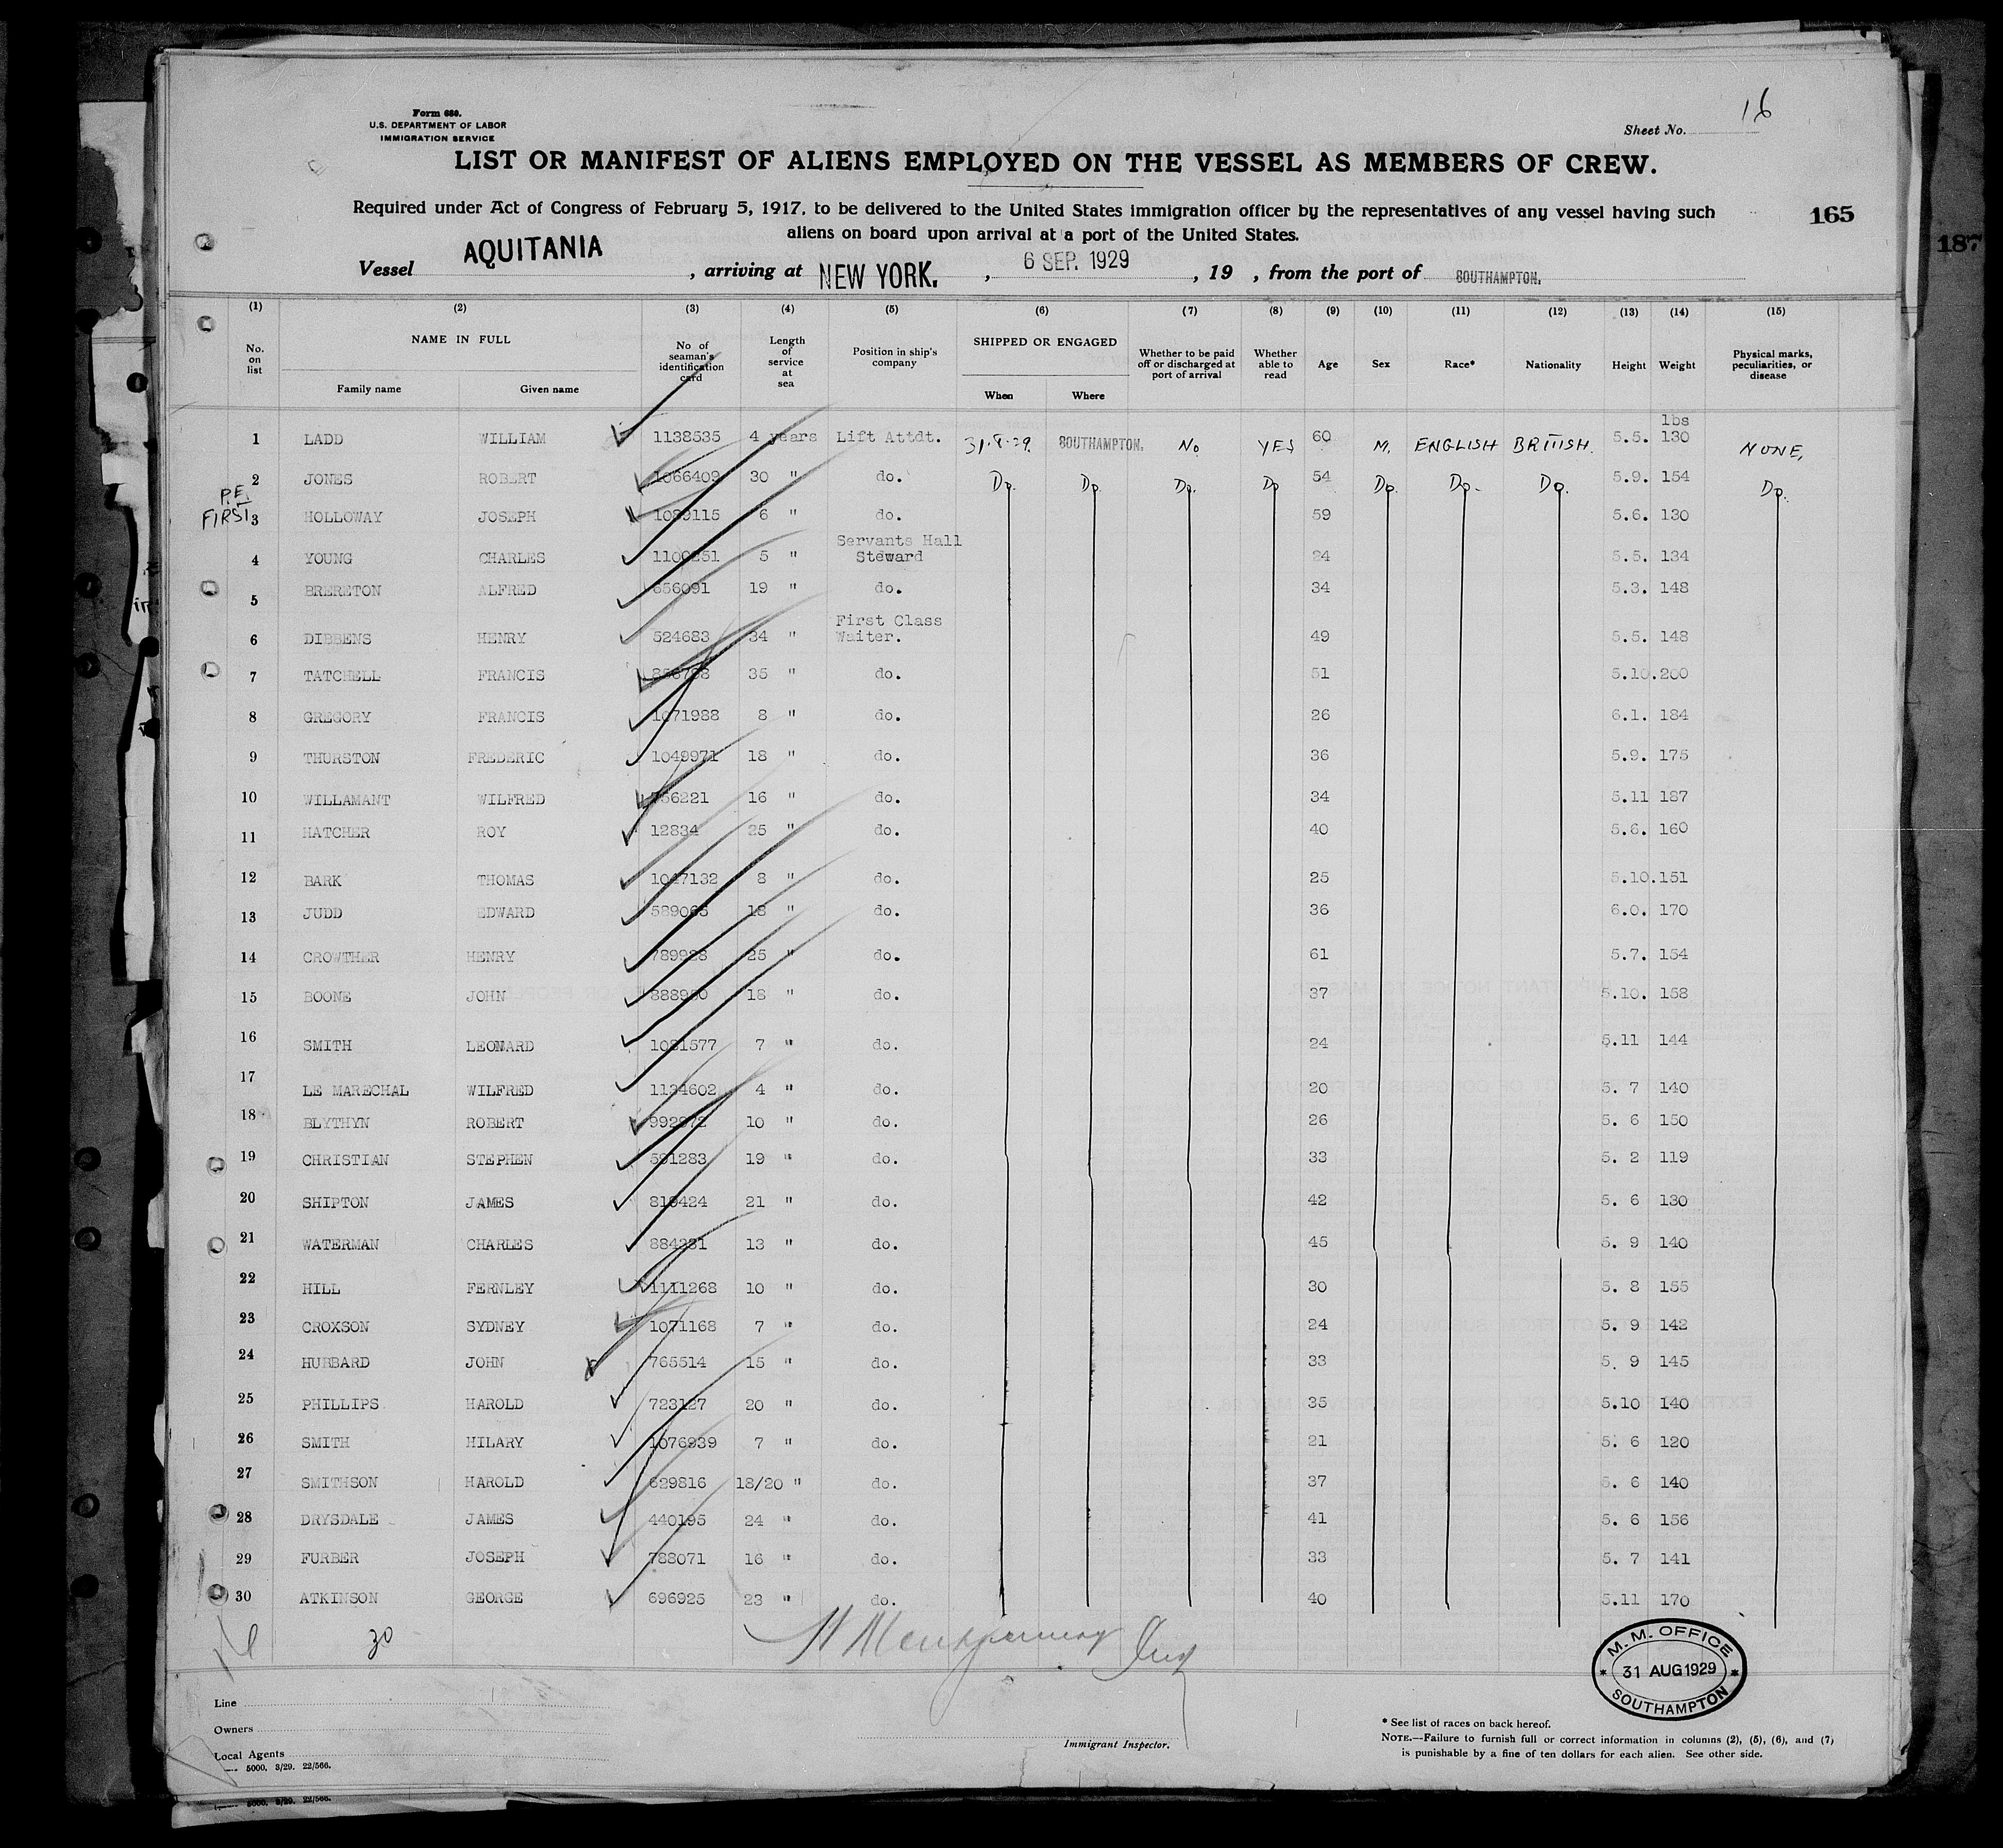 16
Form 680.
U.S. DEPARTMENT OF LABOR
IMMIGRATION SERVICE
Sheet No.
LIST OR MANIFEST OF ALIENS EMPLOYED ON THE VESSEL AS MEMBERS OF CREW.
Required under Act of Congress of February 5, 1917, to be delivered to the United States immigration officer by the representatives of any vessel having such
aliens on board upon arrival at a port of the United States.
165
187
Vessel AQUITANIA, arriving at NEW YORK., 6 SEP. 1929, 19 , from the port of SOUTHAMPTON.
(1) (2) (3) (4) (5) (6) (7) (8) (9) (10) (11) (12) (13) (14) (15)
No. on list NAME IN FULL Family name Given name No of seaman's identification card Length of service at sea Position in ship's company SHIPPED OR ENGAGED When Where Whether to be paid off or discharged at port of arrival Whether able to read Age Sex Race* Nationality Height Weight Physical marks, peculiarities, or disease
lbs
1 LADD WILLIAM 1138535 4 years Lift Attdt. 31.8.29. SOUTHAMPTON. No YES 60 M. ENGLISH BRITISH. 5.5. 130 NONE.
2 JONES ROBERT 1066409 30 " do. Do. Do. Do. Do 54 Do. Do. Do. 5.9. 154 Do.
P.E. FIRST
3 HOLLOWAY JOSEPH 1089115 6 " do. 59 5.6. 130
Servants Hall
4 YOUNG CHARLES 5 " Steward 24 5.5. 134
5 BRERETON ALFRED 656091 19 " do. 34 5.3. 148
First Class
6 DIBBENS HENRY 524683 34 " Waiter. 49 5.5. 148
7 TATCHELL FRANCIS 35 " do. 51 5.10. 200
8 GREGORY FRANCIS 1071988 8 " do. 26 6.1. 184
9 THURSTON FREDERIC 1049971 18 " do. 36 5.9. 175
10 WILLAMANT WILFRED 756221 16 " do. 34 5.11 187
11 HATCHER ROY 12834 25 " do. 40 5.6. 160
12 BARK THOMAS 1047132 8 " do. 25 5.10. 151
13 JUDD EDWARD 589065 18 " do. 36 6.0. 170
14 CROWTHER HENRY 789928 25 " do. 61 5.7. 154
15 BOONE JOHN 18 " do. 37 5.10. 158
16 SMITH LEONARD 1081577 7 " do. 24 5.11 144
17 LE MARECHAL WILFRED 1134602 4 " do. 20 5. 7 140
18 BLYTHYN ROBERT 10 " do. 26 5. 6 150
19 CHRISTIAN STEPHEN 591283 19 " do. 33 5. 2 119
20 SHIPTON JAMES 21 " do. 42 5. 6 130
21 WATERMAN CHARLES 13 " do. 45 5. 9 140
22 HILL FERNLEY 1111268 10 " do. 30 5. 8 155
23 CROXSON SYDNEY 1071168 7 " do. 24 5. 9 142
24 HUBBARD JOHN 765514 15 " do. 33 5. 9 145
25 PHILLIPS HAROLD 723127 20 " do. 35 5.10 140
26 SMITH HILARY 1076939 7 " do. 21 5. 6 120
27 SMITHSON HAROLD 629816 18/20 " do. 37 5. 6 140
28 DRYSDALE JAMES 440195 24 " do. 41 5. 6 156
29 FURBER JOSEPH 788071 16 " do. 33 5. 7 141
30 ATKINSON GEORGE 696925 23 " do. 40 5.11 170
30
Montgomery
M. M. OFFICE
31 AUG 1929
SOUTHAMPTON
Line
Owners
Local Agents
5000. 3/29. 22/566.
Immigrant Inspector.
* See list of races on back hereof.
NOTE.—Failure to furnish full or correct information in columns (2), (5), (6), and (7)
is punishable by a fine of ten dollars for each alien. See other side.
5000. 3/29. 22/566.